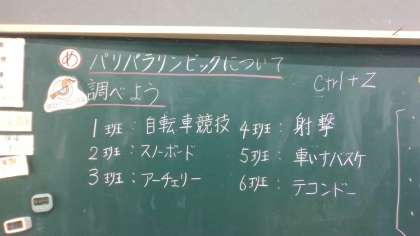 め パリパラリンピックについて
調べよう
Ctrl+Z
1班:自転車競技
2班:スノーボード
3班:アーチェリー
4班:射撃
5班:車いすバスケ
6班:テコンドー